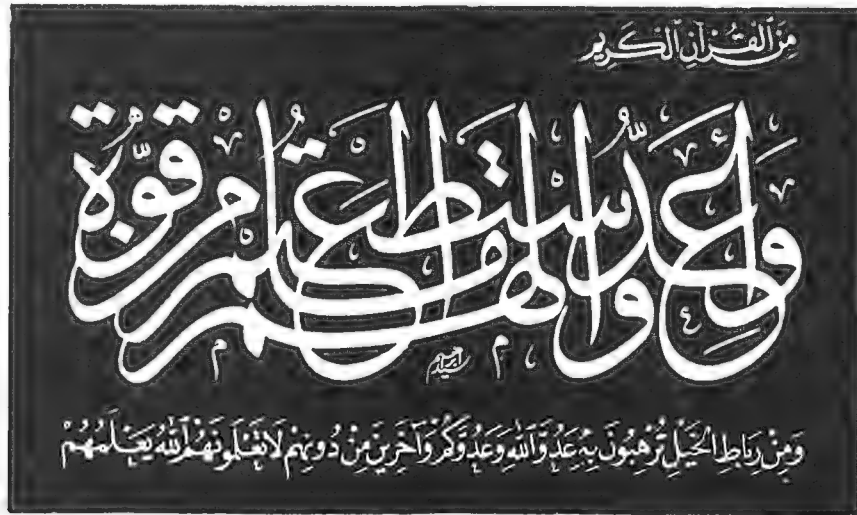 مِنَ ٱلْقُرْآنِ ٱلْكَرِيمِ
وَأَعِدُّوا لَهُمْ مَا اسْتَطَعْتُمْ مِنْ قُوَّةٍ
وَمِنْ رِبَاطِ الْخَيْلِ تُرْهِبُونَ بِهِ عَدُوَّ ٱللَّهِ وَعَدُوَّكُمْ وَآخَرِينَ مِنْ دُونِهِمْ لَا تَعْلَمُونَهُمُ ٱللَّهُ يَعْلَمُهُمْ